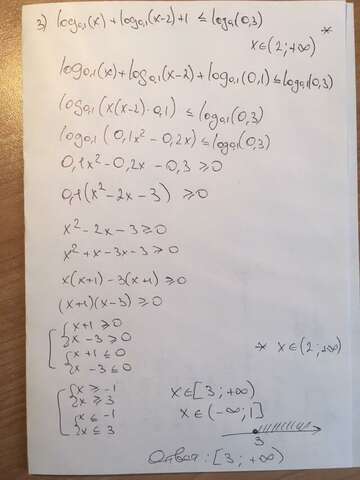 3) log₀,₁(x) + log₀,₁(x-2)+1 ≤ log₀,₁(0,3)
*
x∈(2;+∞)
log₀,₁(x)+log₀,₁(x-2)+log₀,₁(0,1)≤log₀,₁(0,3)
log₀,₁(x(x-2)·0,1) ≤ log₀,₁(0,3)
log₀,₁(0,1x²-0,2x)≤log₀,₁(0,3)
0,1x²-0,2x-0,3 ≥0
0,1(x²-2x-3) ≥0
x²-2x-3≥0
x²+x-3x-3≥0
x(x+1)-3(x+1)≥0
(x+1)(x-3)≥0
x+1≥0
x-3≥0
x+1≤0
* x∈(2;+∞)
x-3≤0
x≥-1
x∈[3;+∞)
x≥3
x∈(-∞;1]
x≤-1
x≤3
3
Ответ: [3;+∞)